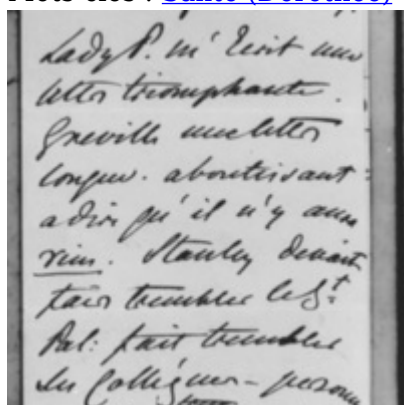 Mots-clés : Santé (Dorothée)
Lady P. m'écrit une
lettre triomphante.
Greville une lettre
longue. aboutissant
a dire qu'il n'y aura
rien. Stanley devait
faire trembler le Gt
Pal: fait trembler
les Collègues - personne